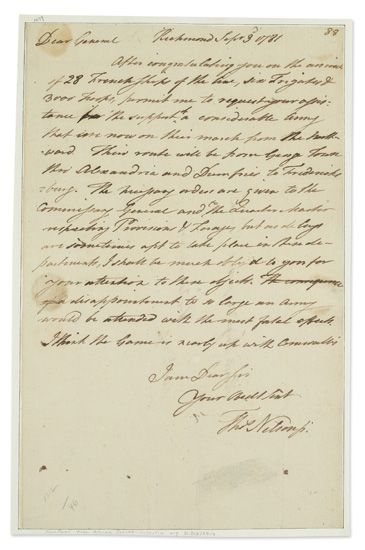 88
Dear General Richmond Sept. 3d 1781
After congratulating you on the arrival
of 28 French ships of the line, six Frigates &
3000 Troops, permit me to request your assis-
tance for the support of a considerable Army
that are now on their march from the North-
ward. Their route will be from George Town
thro Alexandria and Dumfries, to Fredericks-
-burg. The necessary orders are given to the
Commissary General and the Quarter Master
respecting Provision & Forage, but as delays
are sometimes apt to take place in these de-
partments, I shall be much oblig'd to you for
your attention to these objects. The consequence
of a disappointment to so large an Army
would be attended with the most fatal effects.
I think the Game is nearly up with Cornwallis
I am Dear Sir
Your Obedt Servt
Thos Nelson Jr.